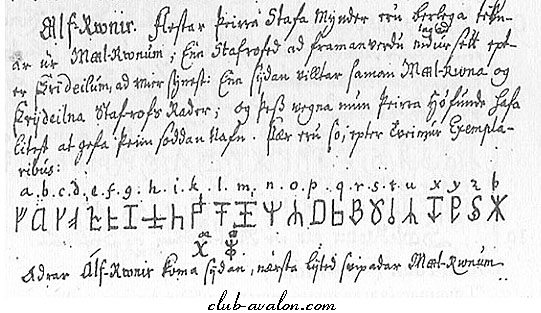 Alf-Rwnir. Flestar þeirra Stafa Mynder eru berlega tekn-
ar ur Mæl-Rwnum; Enn Stafrofed ad framanverdu nidur sett ept-
er Frideilum, ad mier synest: Enn sydan villtar saman Mæl-Rwna og
Frydeilna Stafrofs Rader; og þess vegna mun þeirra Høfunde hafa
litest at gefa þeim soddan Nafn. Þær eru so, epter tveimur Exempla-
ribus:
a. b. c. d. e. f. g. h. i. k. l. m. n. o. p. q. r. s. t. u x y z þ
æ
Adrar Alf-Rwnir koma sydan, næsta lijted svipadar Mæl-Rwnum
club-avalon.com